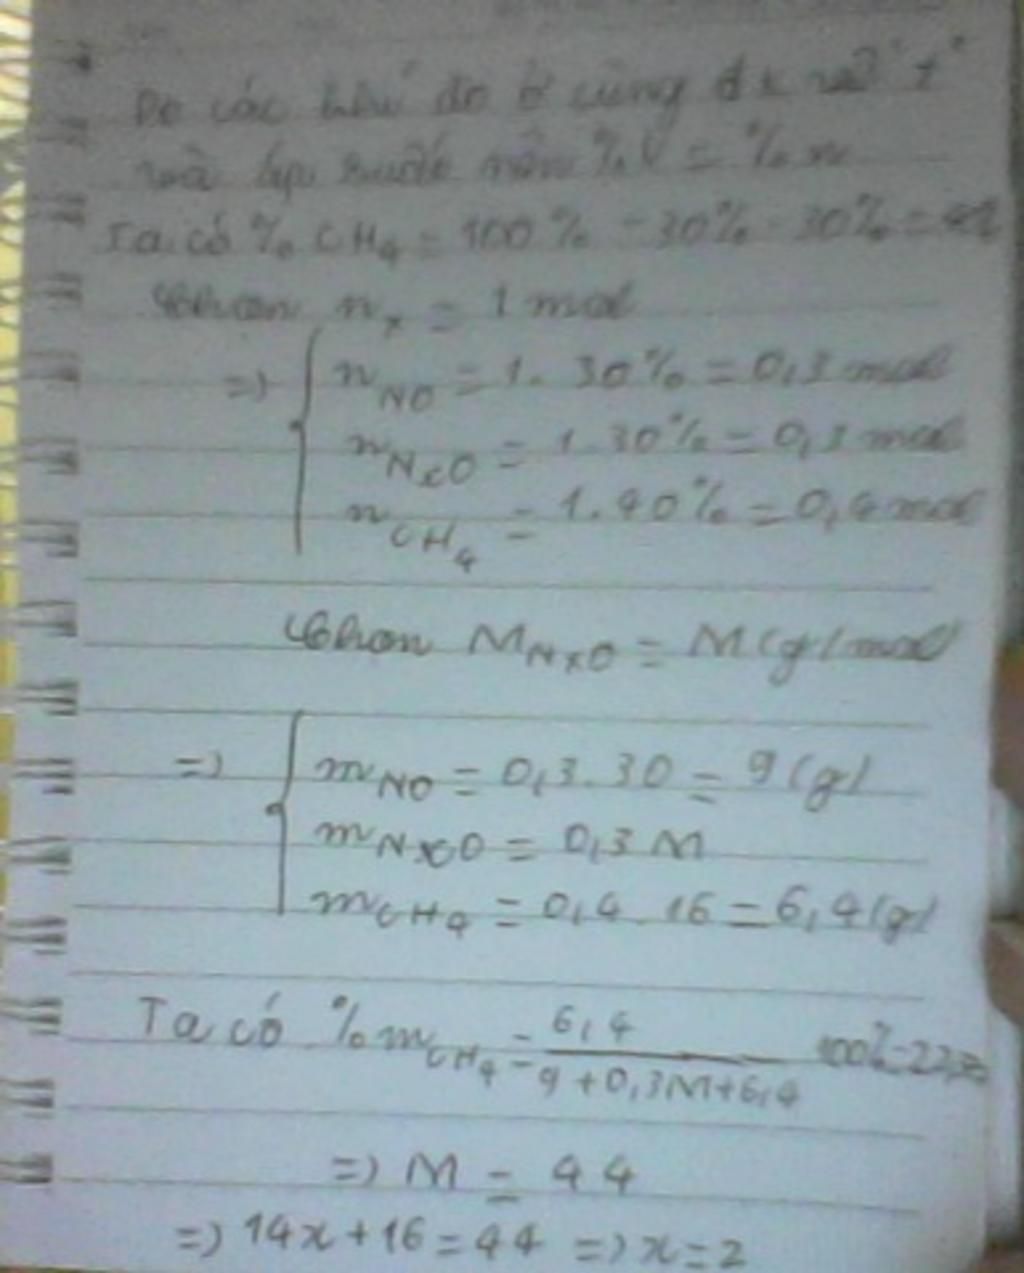 Do các khí đo ở cùng đk về t°
và áp suất nên %V = %n
Ta có % CH₄ = 100% - 30% - 30% =
Chọn nₓ = 1 mol
=> { n_NO = 1. 30% = 0,3 mol
n_NxO = 1.30% = 0,3 mol
n_CH₄ = 1.40% = 0,4 mol
Chọn M_NxO = M (g/mol)
=> { m_NO = 0,3. 30 = 9 (g)
m_NxO = 0,3 M
m_CH₄ = 0,4 . 16 = 6,4 (g)
Ta có %m_CH₄ = 6,4 / (9 + 0,3M + 6,4) . 100% =
=> M = 44
=> 14x + 16 = 44 => x = 2